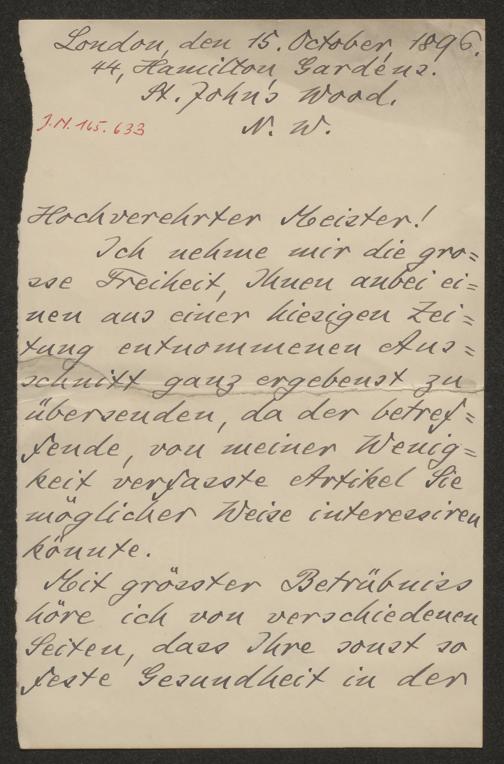 London, den 15. October, 1896.
44, Hamilton Gardens.
St. John's Wood.
J.N. 165.633
N. W.
Hochverehrter Meister!
Ich nehme mir die gro=
sse Freiheit, Ihnen anbei ei=
nen aus einer hiesigen Zei=
tung entnommenen Aus=
schnitt ganz ergebenst zu
übersenden, da der betref=
fende, von meiner Wenig=
keit verfasste Artikel Sie
möglicher Weise interessiren
könnte.
Mit grösster Betrübniss
höre ich von verschiedenen
Seiten, dass Ihre sonst so
feste Gesundheit in der